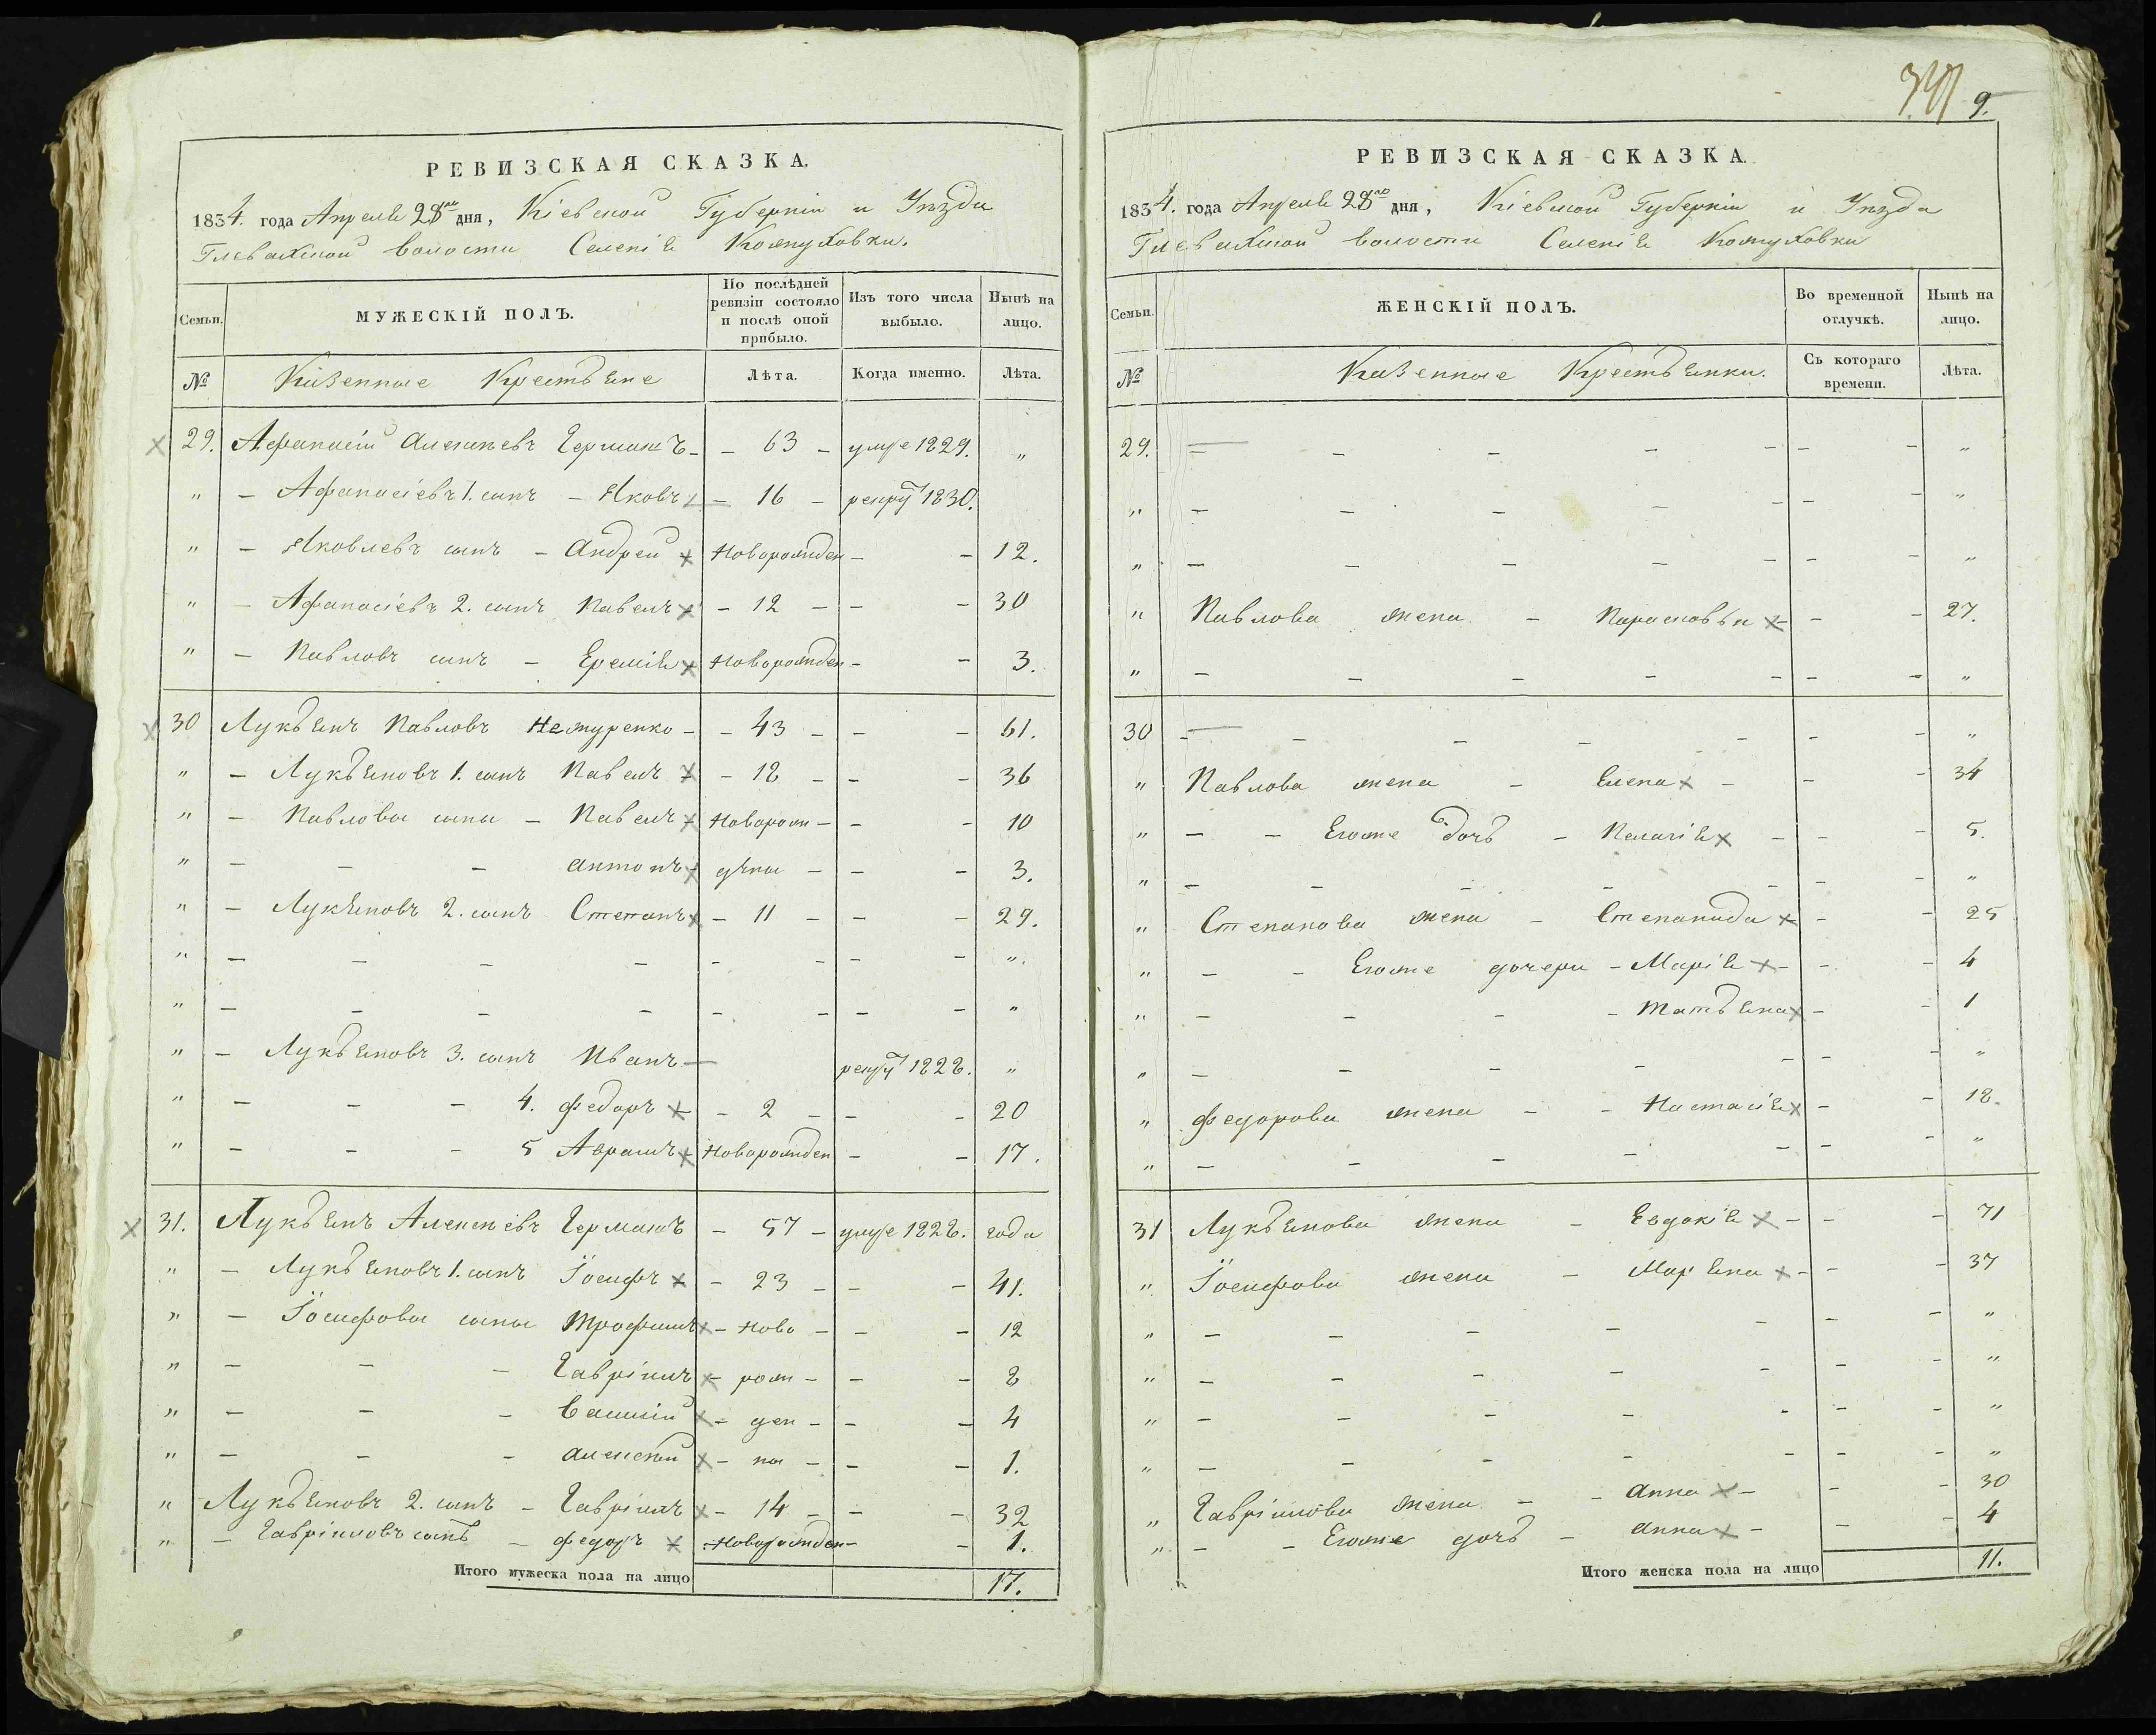 РЕВИЗСКАЯ СКАЗКА.
1834. года Апреля 28го дня, Кіевской Губерніи и Уѣзда
Глевахской волости Селенія Кожуховки.
Семьи. МУЖЕСКІЙ ПОЛЪ. По послѣдней ревизіи состояло и послѣ оной прибыло. Изъ того числа выбыло. Нынѣ на лицо.
№ Казенные Крестьяне Лѣта. Когда именно. Лѣта.
29. Афанасій Алексѣевъ Германъ - - 63 - умре 1829. „
„ - Афанасіевъ 1. сынъ - Яковъ - 16 - рекрут 1830.
„ - Яковлевъ сынъ - Андрей x Новорожден - - 12.
„ - Афанасіевъ 2. сынъ Павелъ x - 12 - - - 30
„ - Павловъ сынъ - Еремія x Новорожден - - 3.
30 Лукьянъ Павловъ Нежуренко - - 43 - - - 61.
„ - Лукьяновъ 1. сынъ Павелъ x - 18 - - - 36
„ - Павловы сыны - Павелъ x Новорож - - - 10
„ - - - антонъ x дѣны - - - 3.
„ - Лукяновъ 2. сынъ Степанъ x - 11 - - - 29.
„ - - - - - - - - „.
„ - - - - - - - - „
„ - Лукьяновъ 3. сынъ Иванъ — рекрут 1828. „
„ - - - 4. федоръ x - 2 - - - 20
„ - - - 5 Аврамъ x Новорожден - - 17.
31. Лукьянъ Алексѣевъ Германъ - 57 - умре 1828. года
„ - Лукьяновъ 1. сынъ Іосифъ x - 23 - - - 41.
„ - Іосифовы сыны Трофимъ x - Ново - - - 12
„ - - - Гавріилъ x - рож - - - 8
„ - - - Василій x - ден - - - 4
„ - - - алексѣй x - ны - - - 1.
„ Лукьяновъ 2. сынъ - Гавріилъ x - 14 - - - 32
„ - Гавріиловъ сынъ - федоръ x Новорожден - - 1.
Итого мужеска пола на лицо 17.
9.
РЕВИЗСКАЯ СКАЗКА.
1834. года Апреля 28го дня, Кіевской Губерніи и Уѣзда
Глевахской волости Селенія Кожуховки
Семьи. ЖЕНСКІЙ ПОЛЪ. Во временной отлучкѣ. Нынѣ на лицо.
№ Казенные Крестьянки. Съ котораго времени. Лѣта.
29. - - - - - - - „
„ - - - - - - - „
„ - - - - - - - „
„ Павлова жена - Парасковья x - - 27.
„ - - - - - - - „
30 - - - - - - - „
„ Павлова жена - Елена x - - - 34
„ - - Егоже дочь - Пелагія x - - - 5.
„ - - - - - - - „
„ Степанова жена - Степанида x - - 25
„ - - Егоже дочери - Марія x - - - 4
„ - - - - Татьяна x - - 1
„ - - - - - - - „
„ федорова жена - - Настасія x - - 18.
„ - - - - - - - „
31 Лукьянова жена - Евдокія x - - - 71
„ Іосифова жена - Марьяна x - - - 37
„ - - - - - - - „
„ - - - - - - - „
„ - - - - - - - „
„ - - - - - - - „
„ Гавріилова жена - - анна x - - - 30
„ - - Егоже дочь - анна x - - - 4
Итого женска пола на лицо 11.